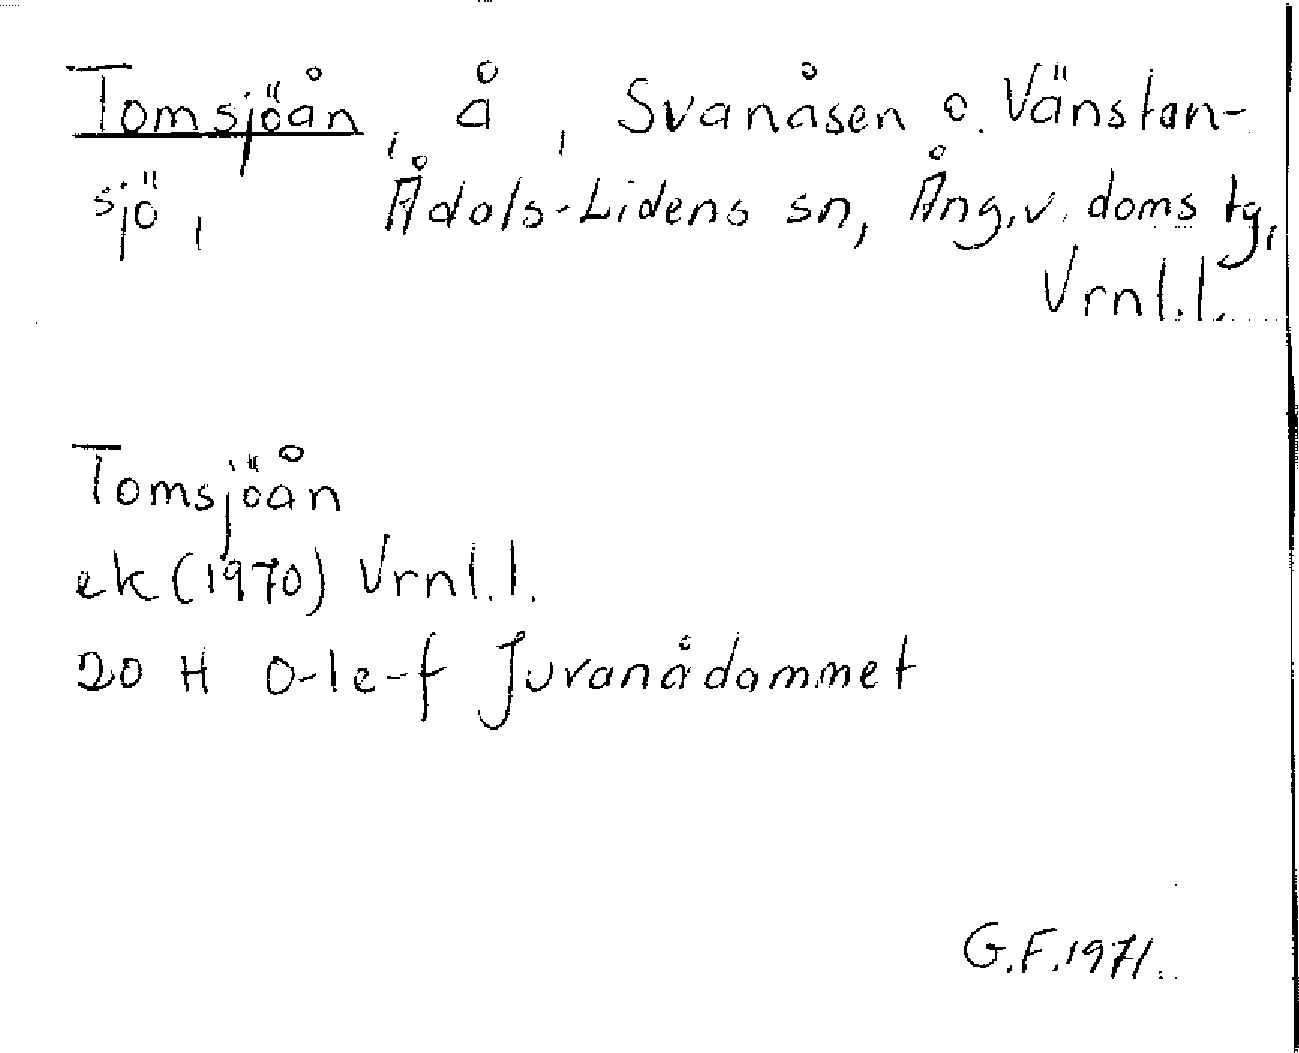 Tomsjöån, å, Svanåsen o. Vänstan-
sjö, Ådals-Lidens sn, Ång. v. doms tg,
Vrnl. l.
Tomsjöån
ek (1970) Vrnl. l.
20 H 0-1e-f Juvanådammet
G.F. 1971.